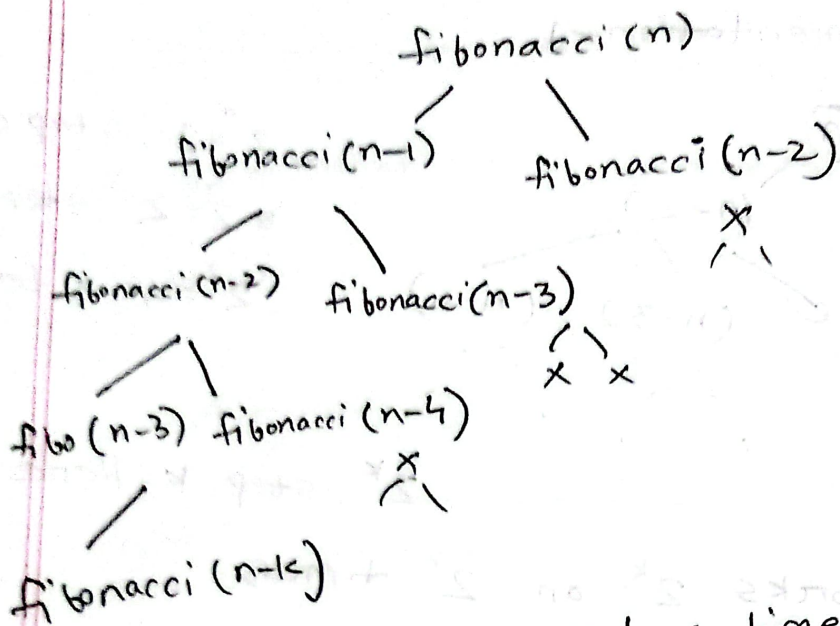 fibonacci (n)
fibonacci (n-1) fibonacci (n-2)
x
fibonacci (n-2) fibonacci (n-3)
x x
fibo (n-3) fibonacci (n-4)
x
fibonacci (n-k)
time